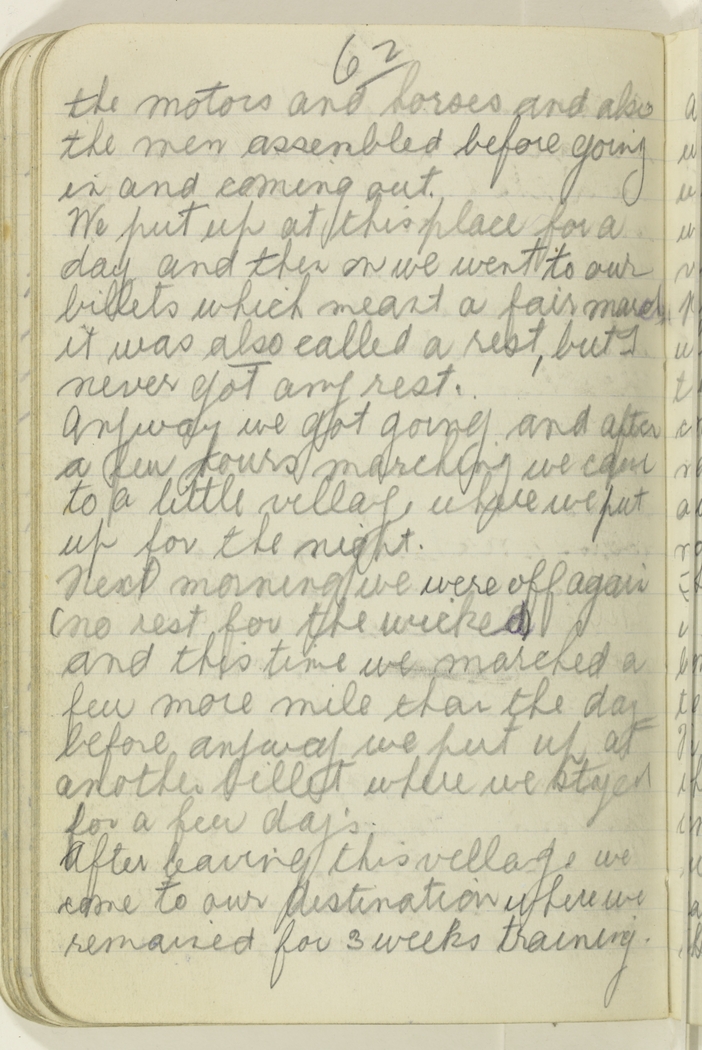 62
the motors and horses and also
the men assembled before going
in and coming out.
We put up at this place for a
day and then on we went to our
billets which meant a fair march
it was also called a rest, but I
never got any rest.
Anyway we got going and after
a few hours marching we came
to a little village where we put
up for the night.
Next morning we were off again
(no rest for the wicked)
and this time we marched a
few more mile than the day
before anyway we put up at
another billet where we stayed
for a few days.
After leaving this village we
come to our destination where we
remained for 3 weeks training.